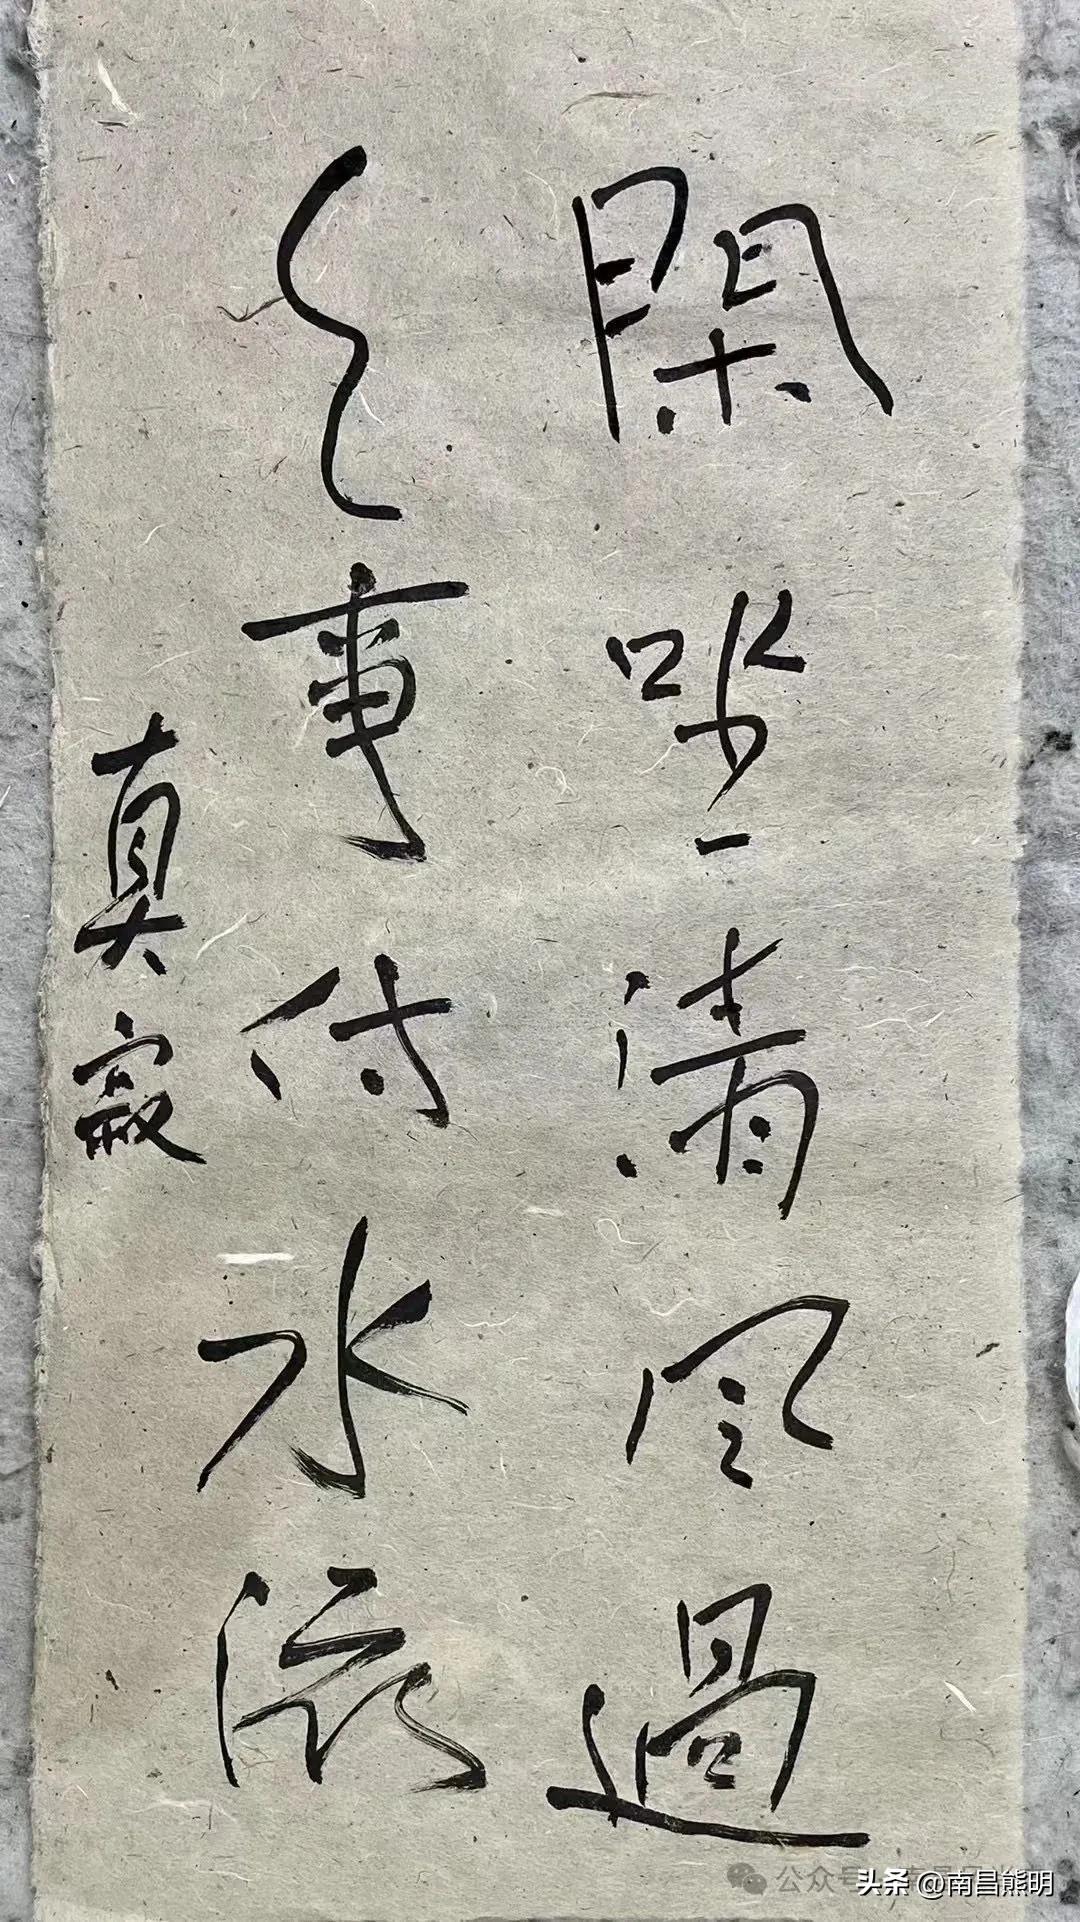 閑坐清風過
事付水流
真寂
公众号
头条 @南昌熊明